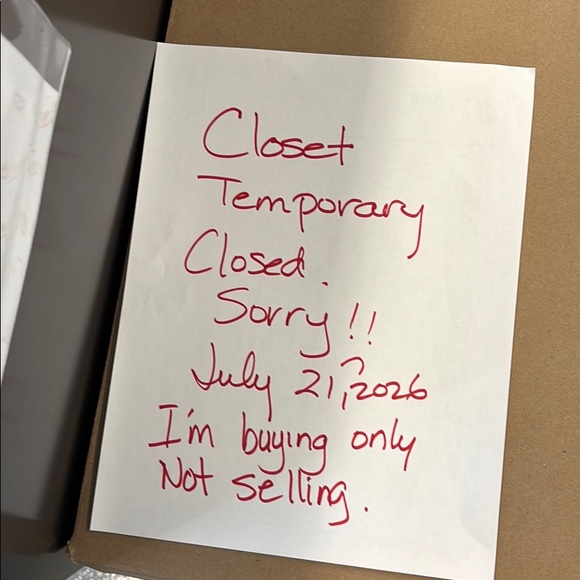 Closet
Temporary
Closed.
Sorry!!
July 21, 2026
I'm buying only
Not selling.